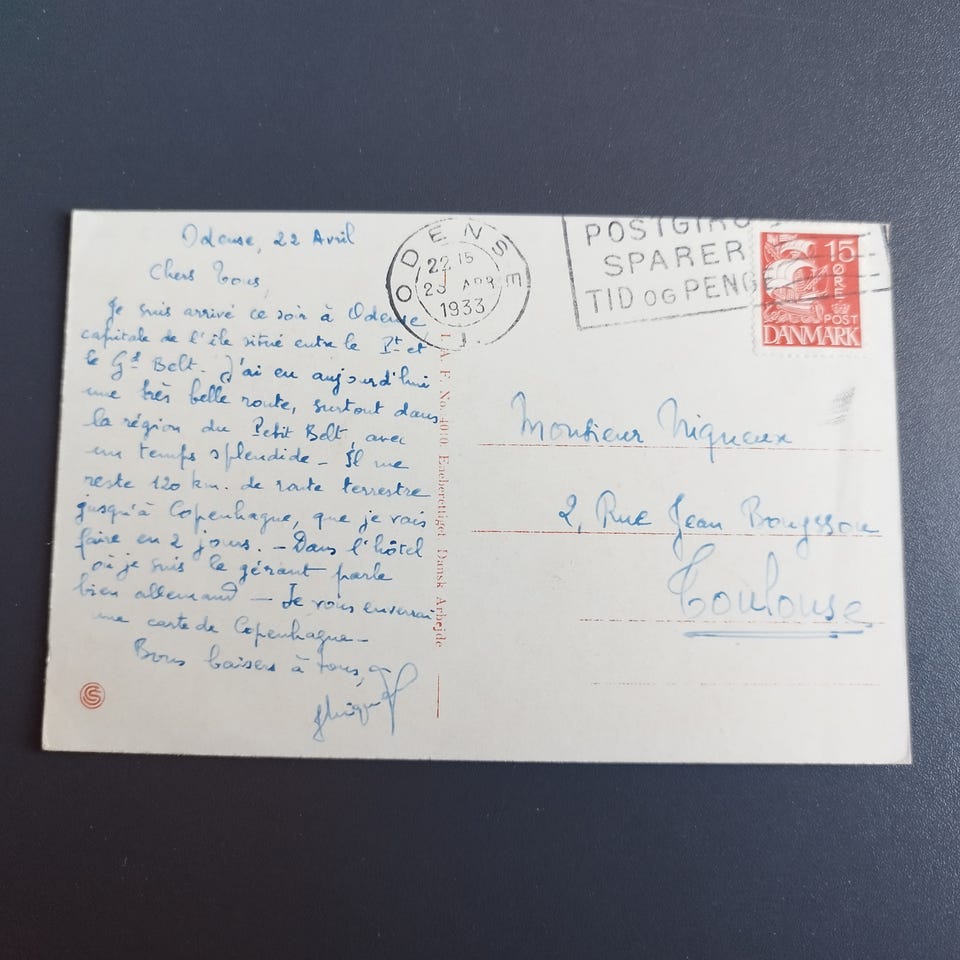 Odense, 22 Avril
Chers Tous,
Je suis arrivé ce soir à Odense
capitale de l'île situé entre le Pt et
le Gd Belt. J'ai eu aujourd'hui
une très belle route, surtout dans
la région du Petit Belt, avec
un temps splendide – Il me
reste 120 km. de route terrestre
jusqu'à Copenhague, que je vais
faire en 2 jours. – Dans l'hôtel
où je suis le gérant parle
bien allemand – Je vous enverrai
une carte de Copenhague –
Bons baisers à tous,
ODENSE
22 15
23 APR
1933
1
POSTGIRO
SPARER
TID OG PENGE
15
ØRE
POST
DANMARK
No. 4010. Eneberettiget Dansk Arbejde
Monsieur Niqueux
2, Rue Jean
Toulouse